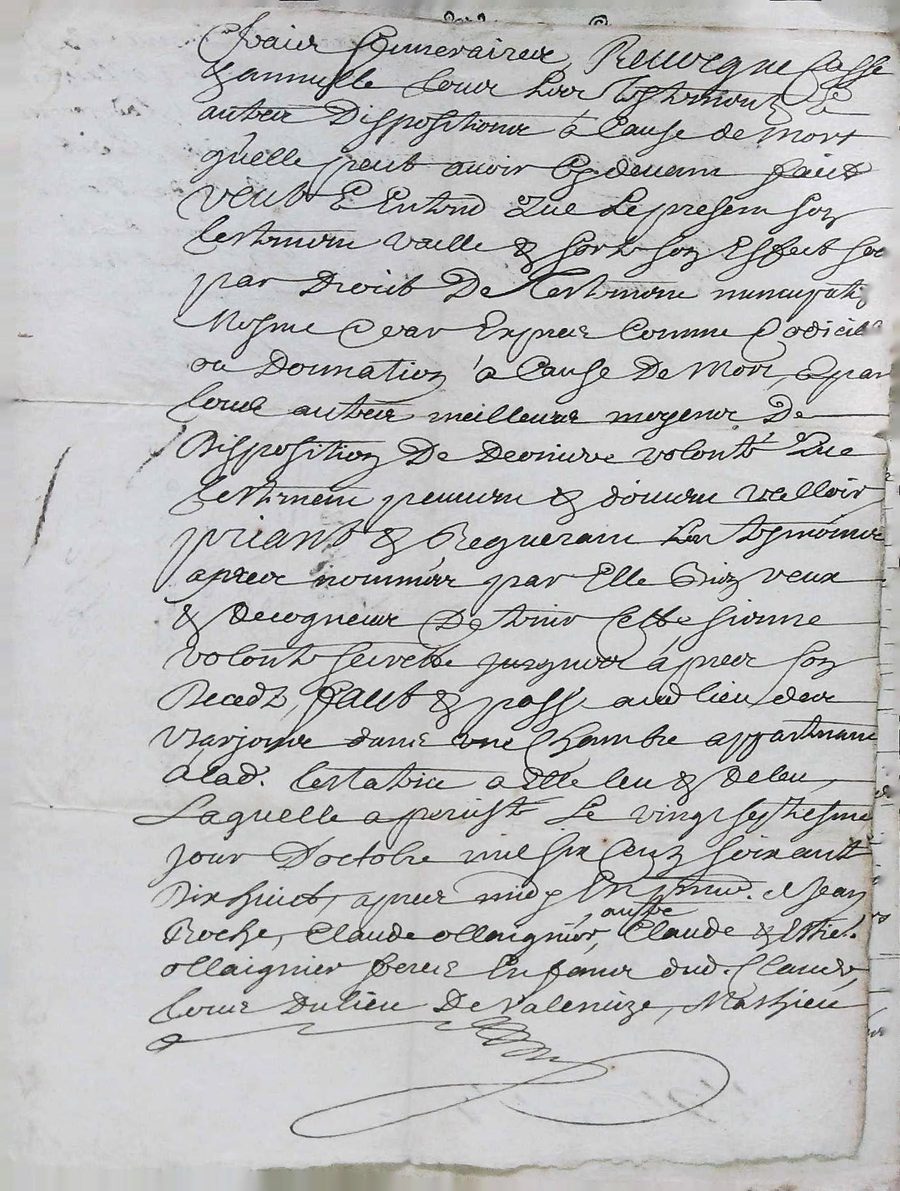 Revocque Casse
& annulle tous her testament &
autres Dispositions à Cause de mort
q'uelle peut avoir Cy devant faict
veut & Entend Que Le presen son
testament vaille & sorte son Effect soi
par Droict De testament nuncupati
ou Donnation à Cause De Mort, & par
tous autres meilleurs moyens De
Disposition De Derniere volonté Que
testament peuven & doivent valloir
priant & Requerant Les tesmoins
apres nommés par Elle Bien veux
& Recogneus De tenir Cette sienne
volonté secrette jusques apres son
Deceds, faict & passé aud lieu de
dans une Chambre appartenant
à lad. testatrice a Elle leu & releu,
Laquelle a persisté Le vingt septiesme
jour D'octobre mil six Cens soixante
Dix huict, apres midy En presence. de Jean
Roche, Claude ollaignier, autre Claude & Estie.
ollaignier freres Enfans dud. Claude,
tous Du lieu De Mathieu